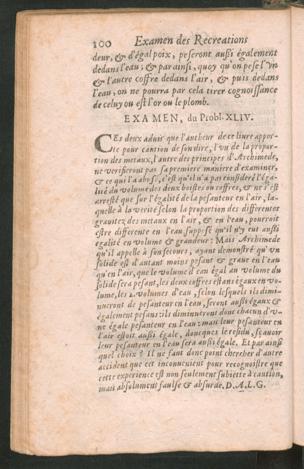 100 Examen des Recreations
deur, & d'égal poix, peseront aussi également
dedans l'eau; & par ainsi, quoy qu'on pese l'vn
& l'autre coffre dedans l'air, & puis dedans
l'eau, on ne pourra par cela tirer cognoissance
de celuy ou est l'or ou le plomb.
EXAMEN, du Probl. XLIV.
CEs deux aduis que l'autheur de ce liure appor-
te pour cantion de son dire, l'vn de la propor-
tion des metaux, l'autre des principes d'Archimede,
ne verifieront pas sa premiere maniere d'examiner,
& ce qui l'a abusé, c'est qu'il n'a pas consideré l'éga-
lité du volume des deux boistes ou coffres, & ne s'est
arresté que sur l'égalité de la pesanteur en l'air, la-
quelle à la verité selon la proportion des differentes
grauitez des metaux en l'air, & en l'eau, pourroit
estre differente en l'eau supposé qu'il n'y eut aussi
égalité en volume & grandeur: Mais Archimede
qu'il appelle à son secours, ayant demonstré qu'vn
solide est d'autant moins pesant & graue en l'eau
qu'en l'air, que le volume d'eau égal au volume du
solide sera pesant, les deux coffres estant égaux en vo-
lume, les 2. volumes d'eau, selon lesquels ils dimi-
nueront de pesanteur en l'eau, seront aussi égaux &
également pesans: ils diminueront donc chacun d'v-
ne égale pesanteur en l'eau: mais leur pesanteur en
l'air estoit aussi égale, doncques le residu, sçauoir
leur pesanteur en l'eau sera aussi égale. Et par ainsi
quel choix? Il ne faut donc point chercher d'autre
accident que cet inconuenient pour recognoistre que
cette experience est non seulement subiette à caution,
mais absolument faulse & absurde. D. A. L. G.